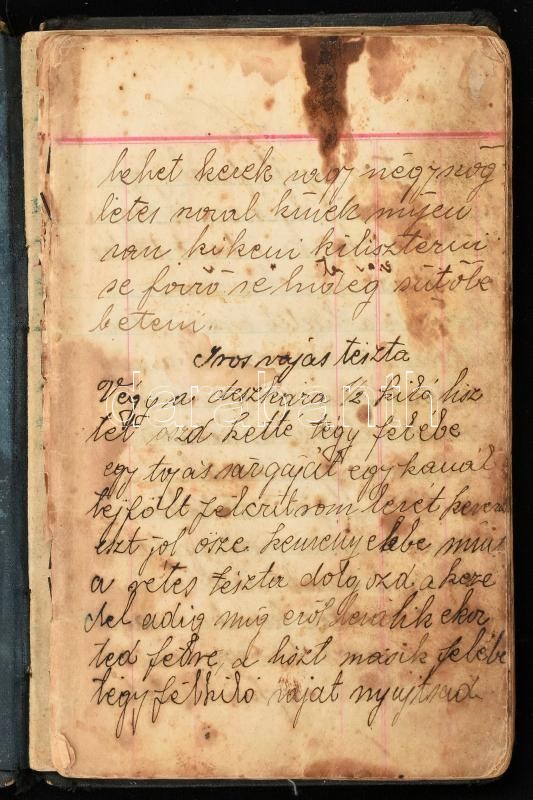 lehet kerek vagy négyszög
letes
van kikeni kiliszterni
se forró se hideg sütőbe
beteni.
Iros vajas teszta
Végy a deszkára 1/2 kiló lisz
tet oszd kette tégy felébe
egy tojás sárgáját egy kanál
tejfölt fél citrom levét
eszt jol ösze keményebbe mint
a rétes teszta dolgozd a keze
del adig mig eröl levalik ekor
ted félre a liszt masik felébe
tégy félkiló vajat nyujtsad
darabanth